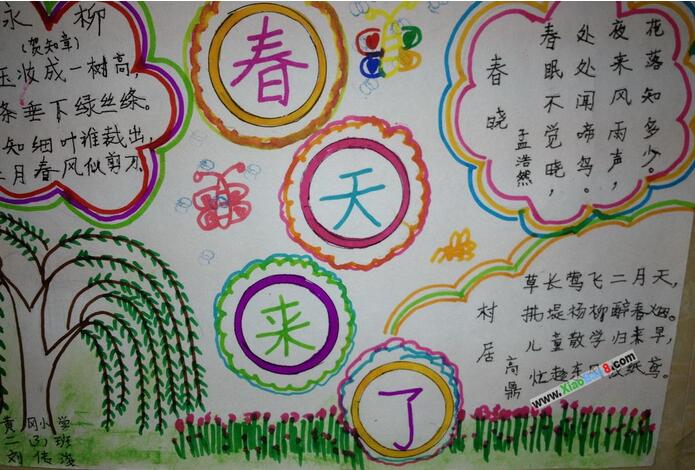 永柳
(贺知章)
玉妆成一树高,
条垂下绿丝条。
知细叶谁裁出,
二月春风似剪刀.
春
天
来
了
春晓
孟浩然
春眠不觉晓,
处处闻啼鸟。
夜来风雨声,
花落知多少。
村居
高鼎
草长莺飞二月天,
拂堤杨柳醉春烟。
儿童散学归来早,
忙趁 纸鸢。
www.Xiaobao8.com
黄冈小学
二 班
刘